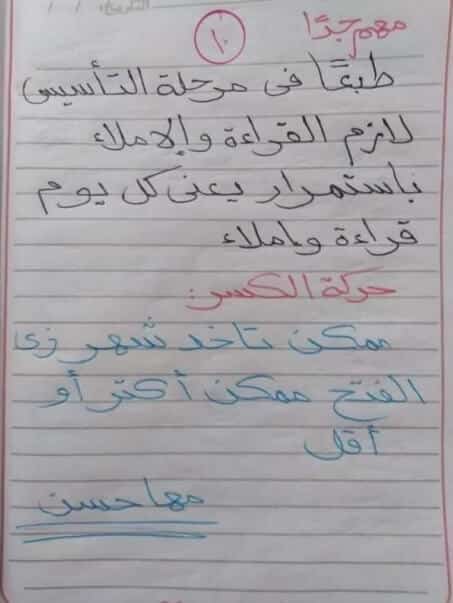 التاريخ: / /
مهم جدًا
١٠
طبعًا فى مرحلة التأسيس
لازم القراءة والإملاء
باستمرار يعنى كل يوم
قراءة وإملاء
حركة الكسر:
ممكن تاخد شهر زى
الفتح ممكن أكتر أو
أقل
مها حسن